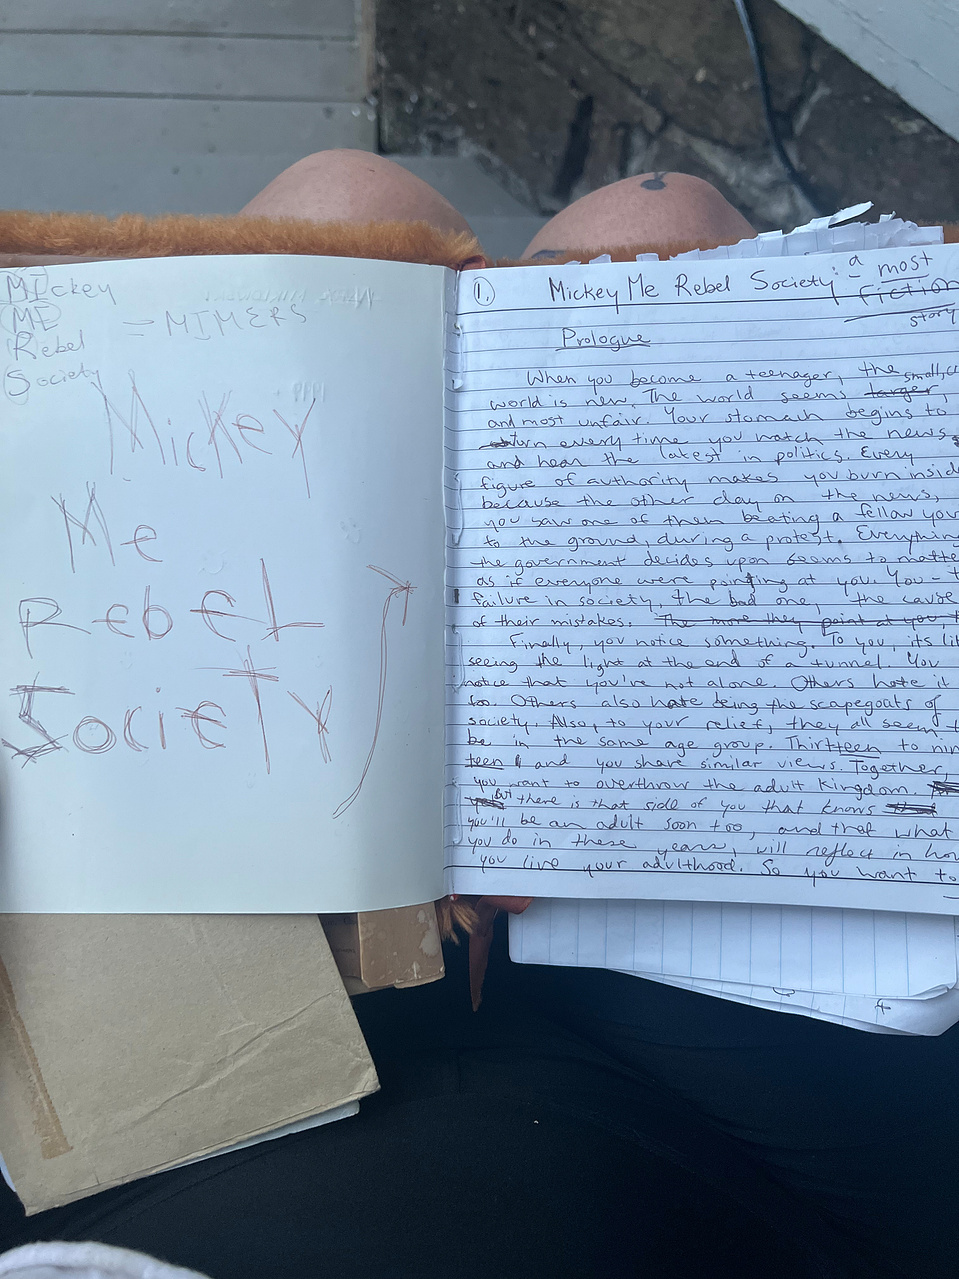 MIckey
ME
Rebel
Society
= MIMERS
Mickey
Me
Rebel
Society
1.
Mickey Me Rebel Society: a most
fiction
story
Prologue
When you become a teenager, the
world is new. The world seems larger, small,
and most unfair. Your stomach begins to
turn every time you watch the news
and hear the latest in politics. Every
figure of authority makes you burn inside
because the other day on the news,
you saw one of them beating a fellow
to the ground, during a protest. Everything
the government decides upon seems to
as if everyone were pointing at you. You -
failure in society, the bad one, the cause
of their mistakes. The more they point at you,
Finally, you notice something. To you, its
seeing the light at the end of a tunnel. You
notice that you're not alone. Others hate it
too. Others also hate being the scapegoats of
society. Also, to your relief, they all seem
be in the same age group. Thirteen to
teen and you share similar views. Together,
you want to overthrow the adult kingdom.
But there is that side of you that knows
you'll be an adult soon too, and that what
you do in these years, will reflect in
you live your adulthood. So you want to